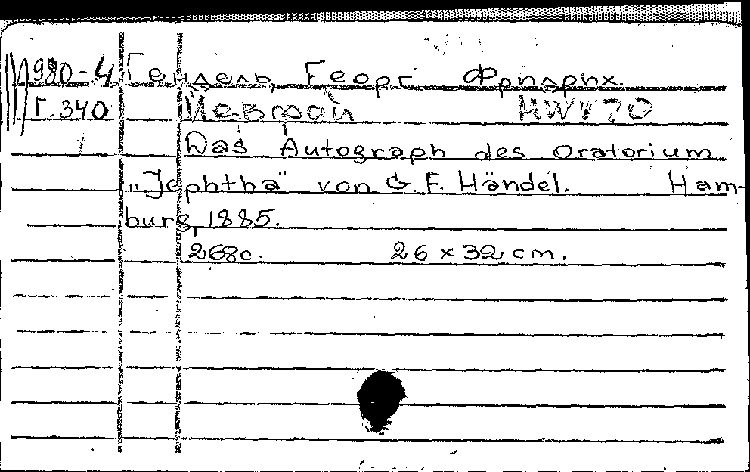 М980-4 Гендель, Георг Фридрих.
Г.340 Иевфай HWV 70
Das Autograph des Oratorium
"Jephtha" von G. F. Händel. Ham-
burg, 1885.
268c. 26 x 32 cm.